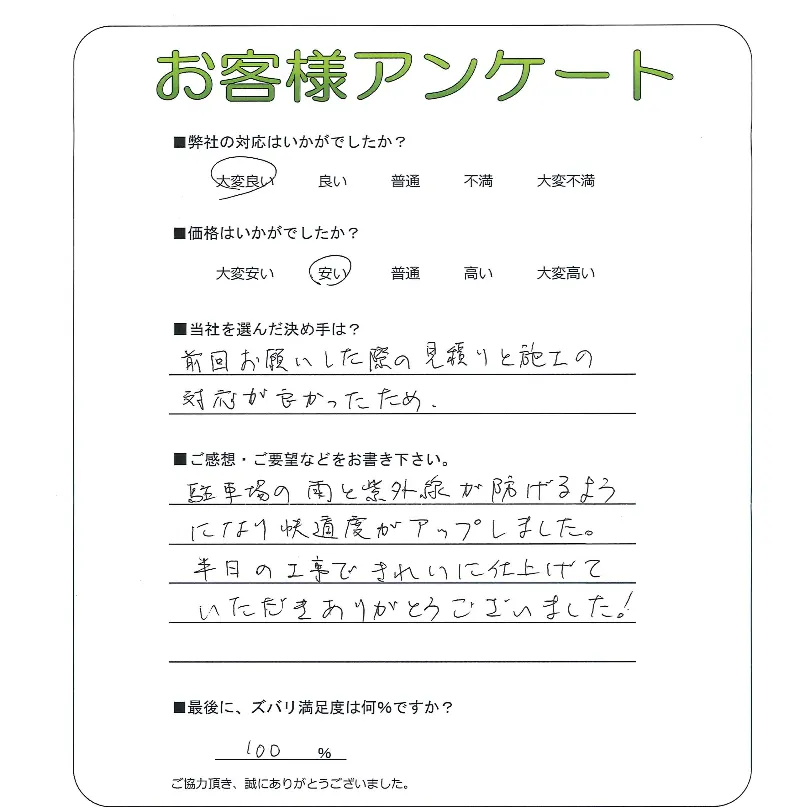 お客様アンケート
■弊社の対応はいかがでしたか？
大変良い 良い 普通 不満 大変不満
■価格はいかがでしたか？
大変安い 安い 普通 高い 大変高い
■当社を選んだ決め手は？
前回お願いした際の見積りと施工の
対応が良かったため.
■ご感想・ご要望などをお書き下さい。
駐車場の雨と紫外線が防げるよう
になり快適度がアップしました。
半日の工事できれいに仕上げて
いただきありがとうございました!
■最後に、ズバリ満足度は何%ですか？
100 %
ご協力頂き、誠にありがとうございました。